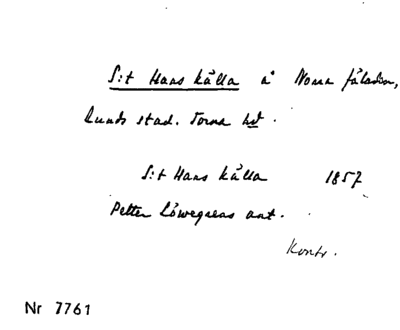 S:t Hans källa å Norra fäladen,
Lunds stad. Torna hd.
S:t Hans källa 1857
Petter Löwegrens ant.
Kontr.
Nr 7761